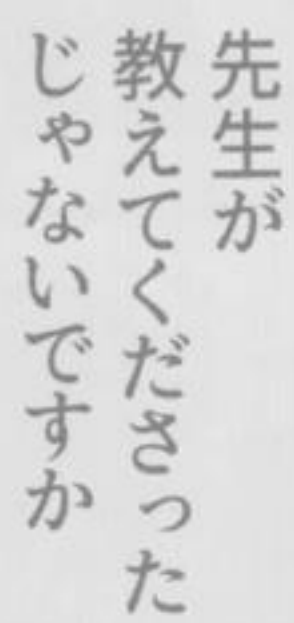 先生が
教えてくださった
じゃないですか